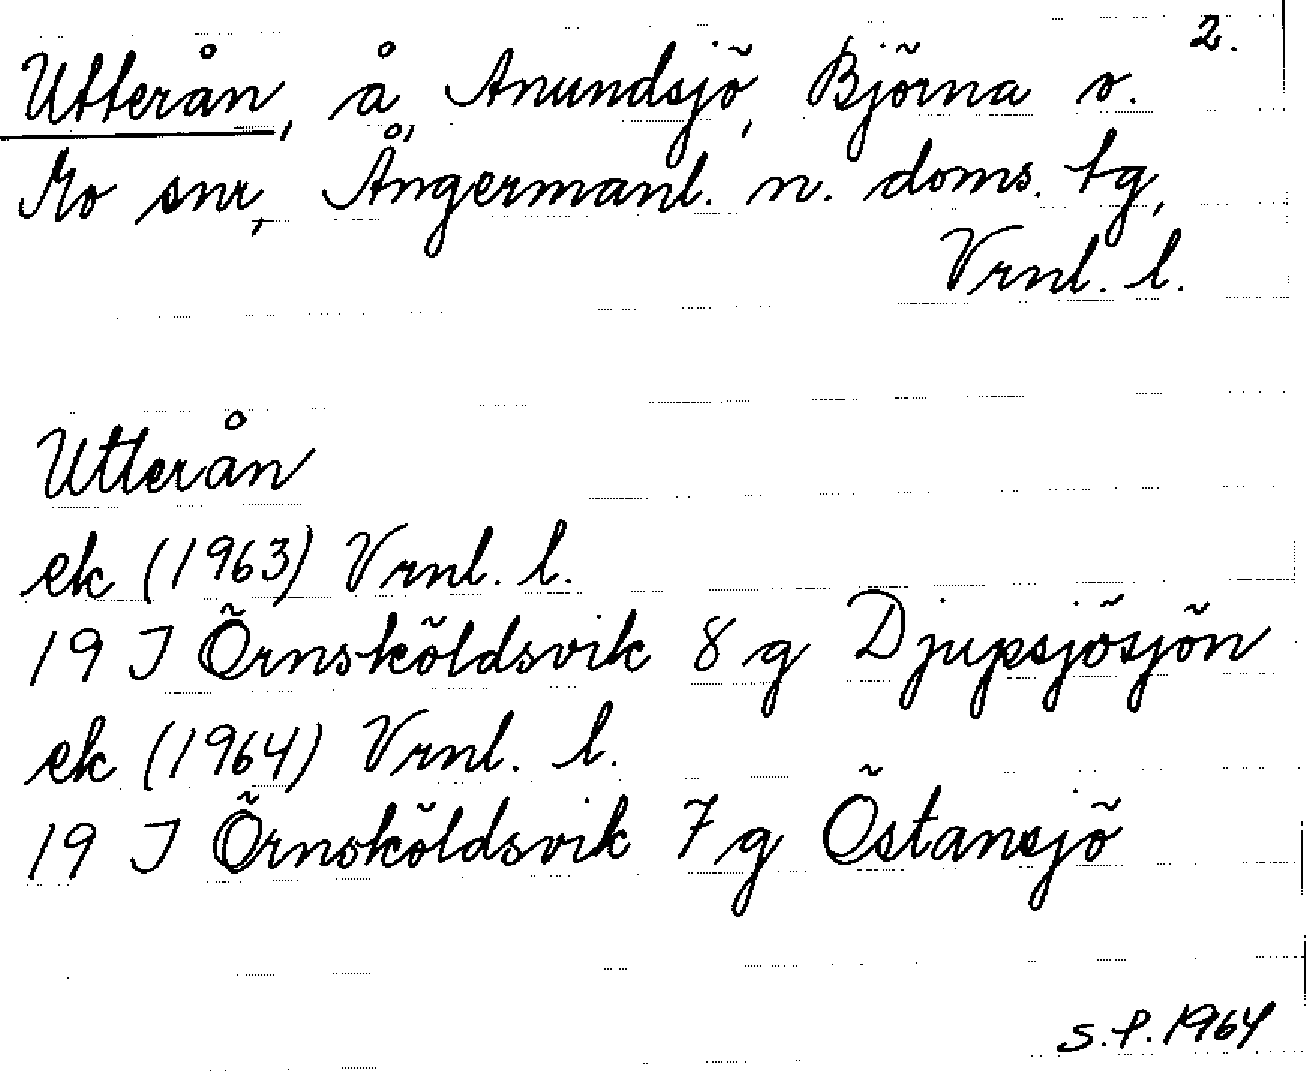 2.
Utterån, å, Anundsjö, Björna o.
Mo snr, Ångermanl. n. doms. tg,
Vrnl. l.
Utterån
ek (1963) Vrnl. l.
19 I Örnsköldsvik 8 g Djupsjösjön
ek (1964) Vrnl. l.
19 I Örnsköldsvik 7 g Östansjö
S.P. 1964